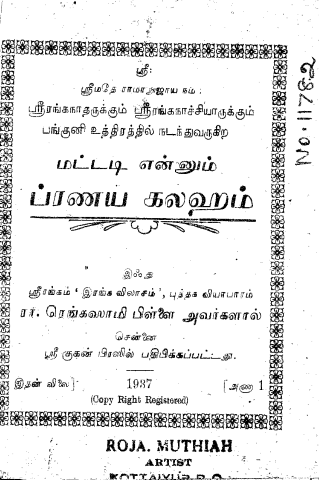 ஸ்ரீ:
ஸ்ரீமதே ராமாநுஜாய நம:
ஸ்ரீரங்கநாதருக்கும் ஸ்ரீரங்கநாச்சியாருக்கும்
பங்குனி உத்திரத்தில் நடந்துவருகிற
மட்டடி என்னும்
ப்ரணய கலஹம்
இஃது
ஸ்ரீரங்கம் ' இரங்க விலாசம் ', புத்தக வியாபாரம்
ரெங்கஸாமி பிள்ளை அவர்களால்
சென்னை
ஸ்ரீ குகன் பிரஸில் பதிபிக்கப்பட்டது.
இதன் விலை] 1937 [அணா 1
(Copy Right Registered)
No. 11782
ROJA. MUTHIAH
ARTIST
KOTTAIYUR P.O